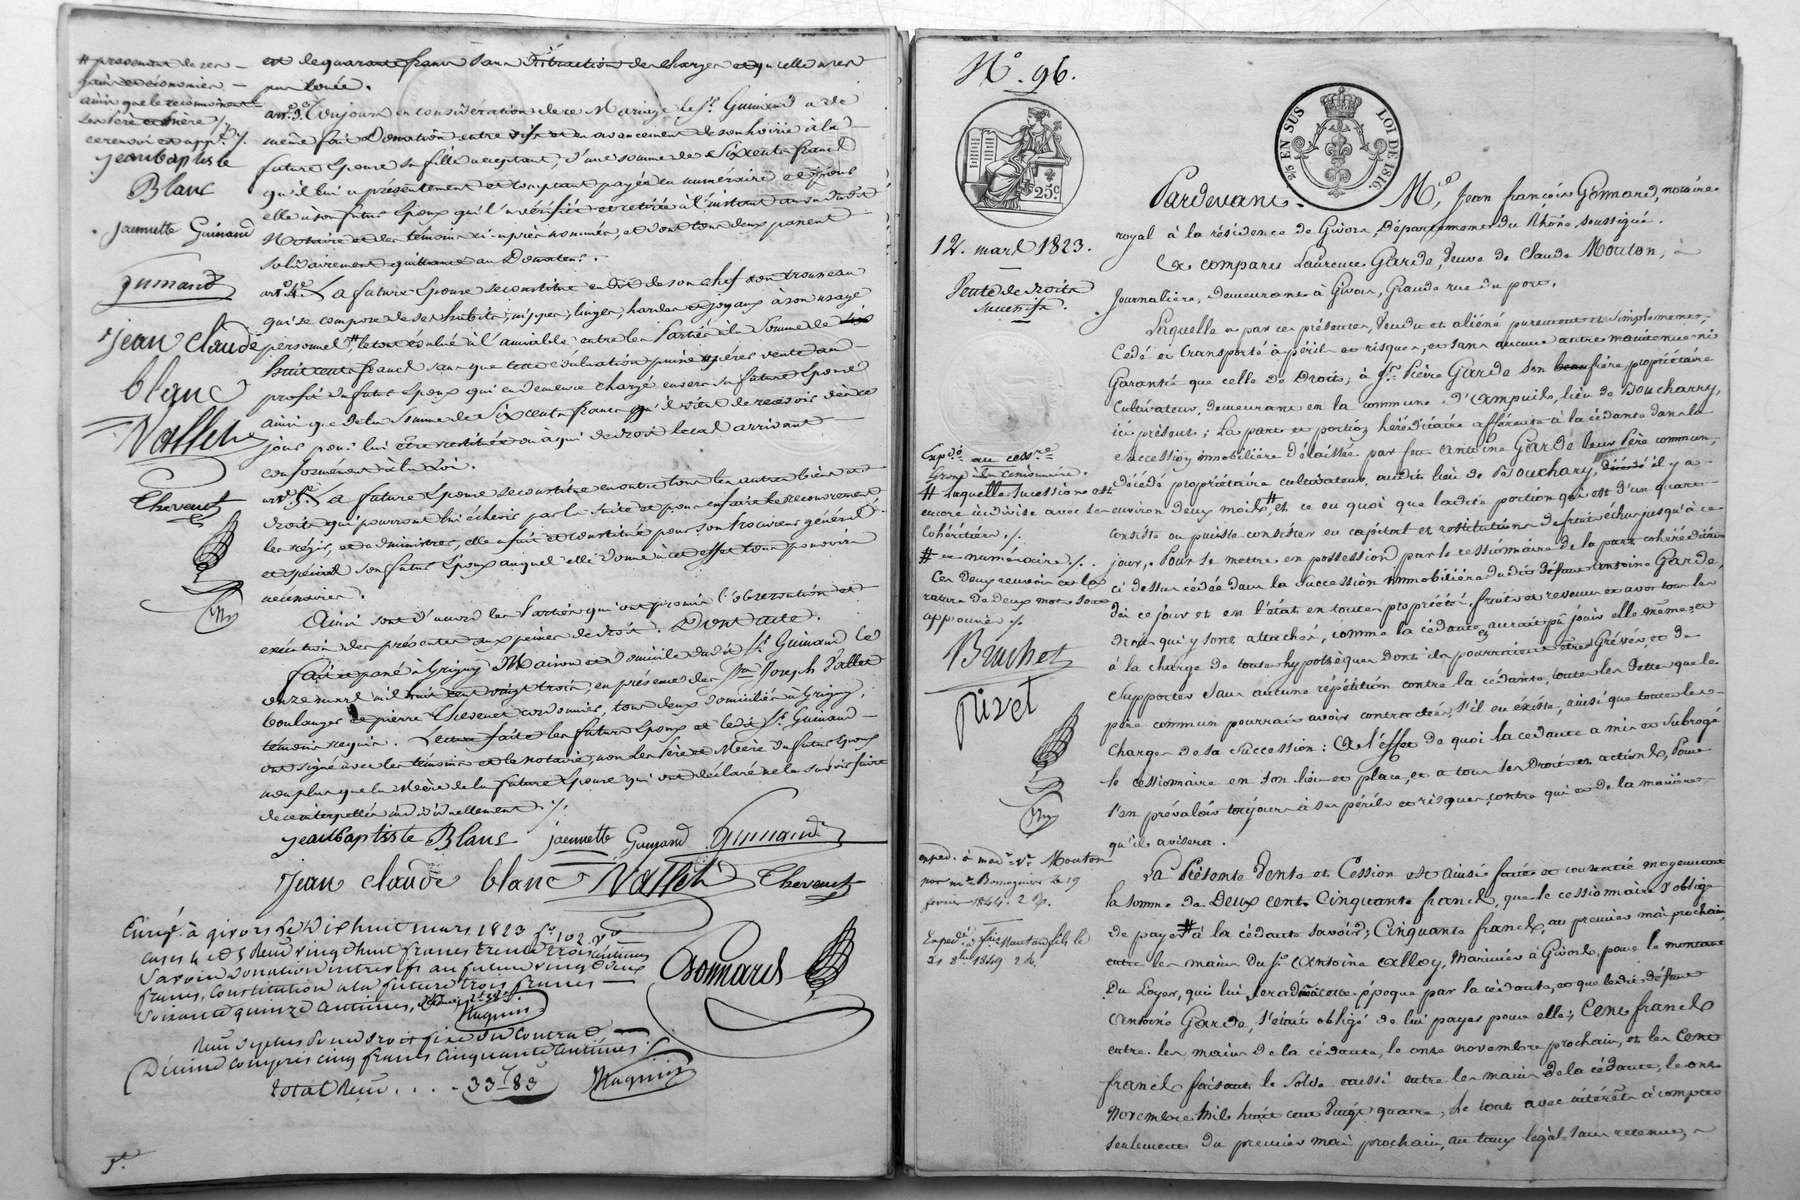 # provenant de ses
gains et économies
ainsi que le reconnaissent
les père et mère
ce renvoi est app.
jean baptiste
Blanc
jeannette Guinand
guinand
jean claude
blanc
Vallet
Chevenet
est de quarante francs sans distraction des charges et qu'elle n'est
pas louée.
art. 3e. Toujours en considération de ce Mariage le Sr. Guinand a de
même fait Donation entre vifs et en avancement de son hoirie à la
future Epouse sa fille acceptant, d'une somme de Six cents francs
qu'il lui a présentement et comptant payée en numéraire et par
elle à son futur Epoux qui l'a vérifiée et retirée à l'instant au vu dudit
Notaire et des témoins ci-après nommés, et dont tous deux passent
solidairement quittance au Donateur.
art. 4e. La future Epouse se constitue en dot de son chef son trousseau
qui se compose de ses habits, nippes, linges, hardes et joyaux à son usage
personnel # le tout évalué à l'amiable entre les Parties à la Somme de
huit cents francs sans que cette évaluation puisse opérer vente au
profit du futur Epoux qui en demeure chargé envers sa future Epouse
ainsi que de la Somme de Six cents francs qu'il vient de recevoir dès ce
jour pour lui être restituée ou à qui de droit le cas arrivant
conformément à la Loi.
art. 5e. La future Epouse se constitue en outre tous les autres biens et
droits qui pourront lui échoir par la suite et pour en faire le recouvrement,
les régir, et administrer, elle a fait et constitué pour son Procureur général
et spécial son futur Epoux auquel elle donne à cet effet tous pouvoirs
nécessaires.
Ainsi sont d'accord les Parties qui ont promis l'observation et
exécution des présentes aux peines de droit. Dont acte.
Fait et passé à Grigny Maison et domicile dudit Sr. Guinand le
onze mars mil huit cent vingt trois, en présence des Srs. Joseph Vallet
boulanger et pierre Chevenet cordonnier, tous deux domiciliés à Grigny,
témoins requis. Lecture faite les futurs Epoux et ledit Sr. Guinand
ont signé avec les témoins et le notaire, non les Père et Mère du futur Epoux
non plus que la Mère de la future Epouse qui ont déclaré ne le savoir faire
de ce interpellés individuellement
jean Baptiste Blanc jeannette Guinand Guinand
jean claude blanc Vallet Chevenet
Enregé. à givors le Dix huit mars 1823 fo. 102 vo.
cases 4 et 5 Reçu vingt huit francs trente trois centimes
Savoir Donation entre vifs au futur vingt deux
francs, Constitution à la future trois francs
soixante quinze centimes,
Huguin
Gonnard
Reçu de plus pour droit fixe du Contrat
Décime compris cinq francs cinquante centimes
total Reçu . . . . 33f 83
Huguin
No. 96.
25c
25 EN SUS
LOI DE 1816.
12. mars 1823.
Vente de droits
Successifs.
Pardevant Me. Jean françois Gonnard, notaire
royal à la résidence de Givors, Département du Rhône, soussigné.
A comparu Laurence Garde, Veuve de Claude Mouton,
Journalière, demeurant à Givors, Grande rue du port.
Laquelle a par ces présentes, Vendu et aliéné purement et simplement,
Cédé et transporté à périls et risques, et sans aucune autre maintenue ni
Garantie que celle de Droit, à Sr. Pierre Garde son beau frère propriétaire
Cultivateur, demeurant en la commune d'Ampuis, lieu de Boucharey,
ici présent; La part et portion héréditaire afférente à la cédante dans la
Succession immobilière délaissée par feu antoine Garde leur père commun,
décédé propriétaire cultivateur audit lieu de Bouchary, décédé il y a
environ deux mois #, et ce en quoi que ladite portion qui est d'un quart
consiste ou puisse consister en capital et restitutions de fruits échus jusqu'à ce
jour, Pour se mettre en possession par le cessionnaire de la part cohéréditaire
ci dessus cédée dans la succession immobilière dudit défunt antoine Garde,
dès ce jour et en l'état en toute propriété, fruits et revenus et avec tous les
droits qui y sont attachés, comme la cédante aurait pu jouir elle même, et
à la charge de toutes hypothèques dont ils pourraient être Grévés, et de
Supporter sans aucune répétition contre la cédante, toutes les dettes que le
père commun pourrait avoir contractées, s'il en existe, ainsi que toutes les
Charges de sa Succession : A l'effet de quoi la cédante a mis et subrogé
le cessionnaire en son lieu et place, et à tous ses Droits et actions, Pour
s'en prévaloir toujours à ses périls et risques, contre qui et de la manière
qu'il avisera.
La Présente Vente et Cession est ainsi faite et consentie moyennant
la somme de Deux cent Cinquante francs, que le cessionnaire s'oblige
de payer # à la cédante savoir; Cinquante francs, au premier mai prochain
entre les mains du Sr. Antoine Alloy, Marinier à Givors, pour le montant
Du Loyer, qui lui sera dû à cette époque par la cédante, et que ledit défunt
Antoine Garde, s'était obligé de lui payer pour elle; Cent francs
entre les mains de la cédante, le onze novembre prochain, et les Cent
francs faisant le Solde aussi entre les mains de la cédante, le onze
Novembre Mil huit cent Vingt quatre, le tout avec intérêts à compter
seulement du premier mai prochain, au taux légal sans retenue,
Expédié au cessre.
Grosse à la
# laquelle succession est
encore indivise avec les
Cohéritiers ./.
# en numéraire ./.
Ces deux renvois et la
rature de Deux mots sont
approuvés ./.
Bruchet
pivet
expéd. à made. ve. Mouton
pour me. le 19
février 1844.
Expédé. à Mouton fils le
21 8bre 1849